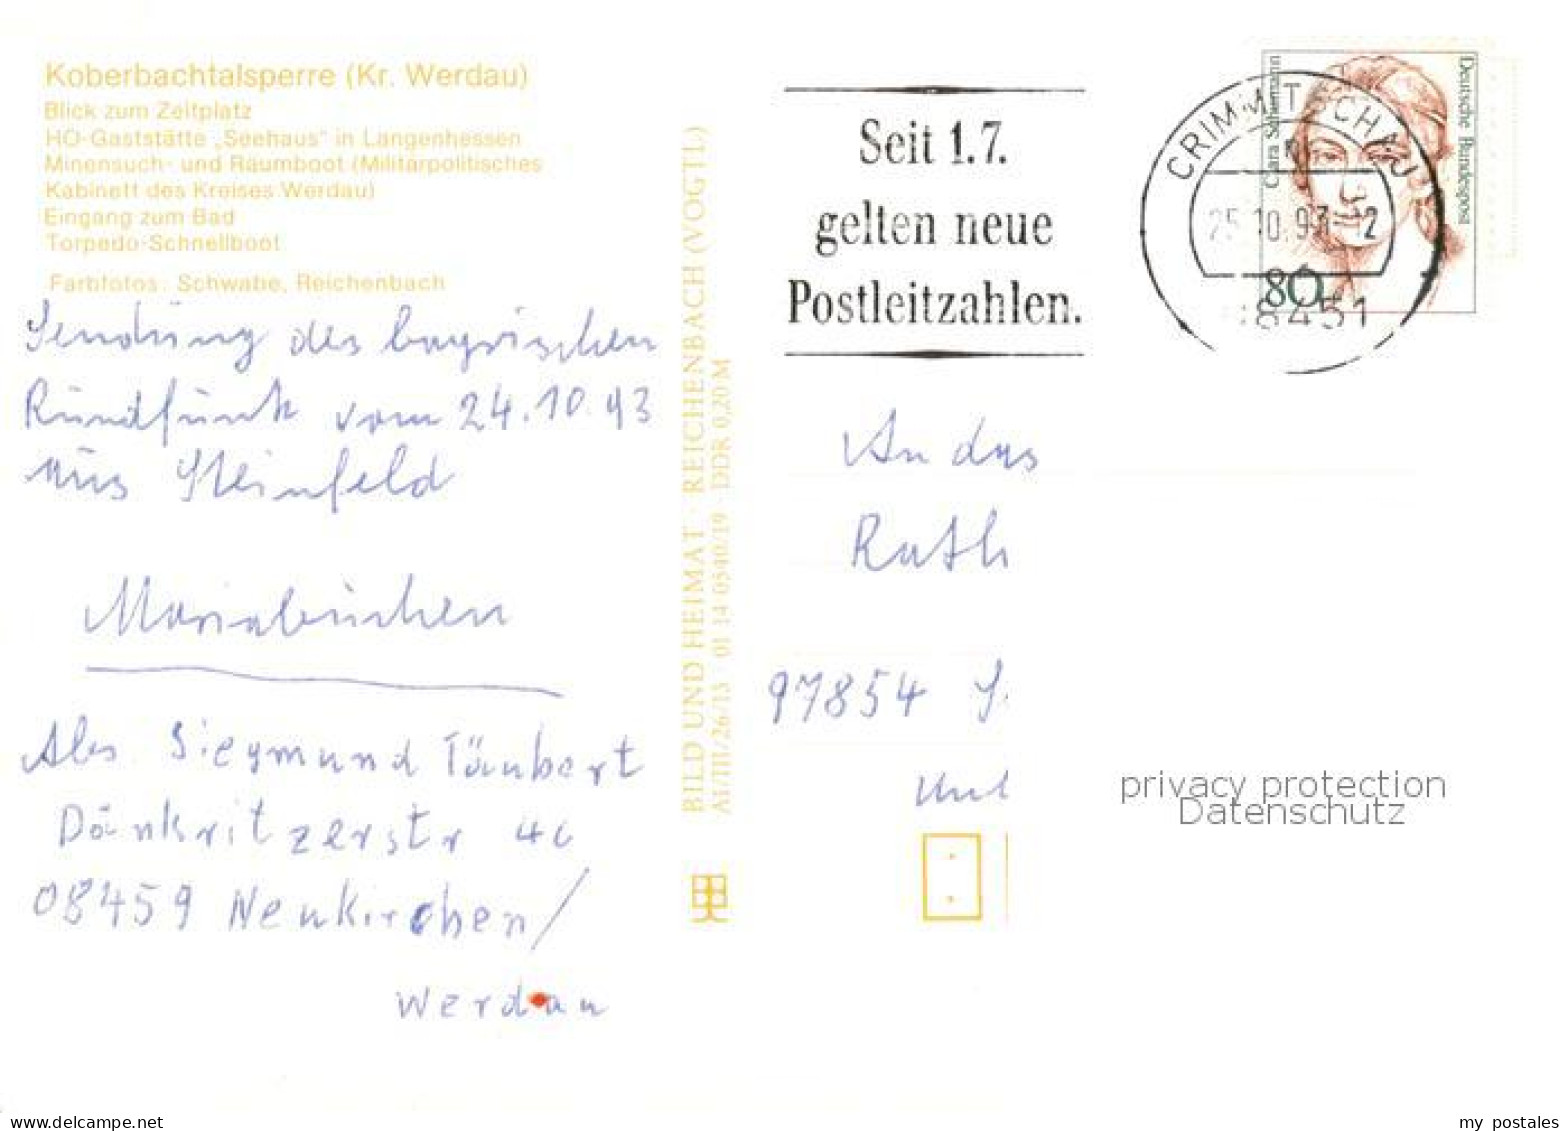 Koberbachtalsperre (Kr. Werdau)
Blick zum Zeltplatz
HO-Gaststätte „Seehaus“ in Langenhessen
Minensuch- und Räumboot (Militärpolitisches
Kabinett des Kreises Werdau)
Eingang zum Bad
Torpedo-Schnellboot
Farbfotos: Schwabe, Reichenbach
Sendung des bayrischen
Rundfunk vom 24.10.93
aus Steinfeld
Mariabuchen
Abs. Siegmund Täubert
Dänkritzerstr 4c
08459 Neukirchen/
Werdau
BILD UND HEIMAT · REICHENBACH (VOGTL)
A1/III/26/13 01 14 0540/19 DDR 0,20 M
Seit 1.7.
gelten neue
Postleitzahlen.
CRIMMITSCHAU
25.10.93-12
08451
Clara Schumann
Deutsche Bundespost
80
An das
Rath
97854 S
privacy protection
Datenschutz
www.delcampe.net
my_postales